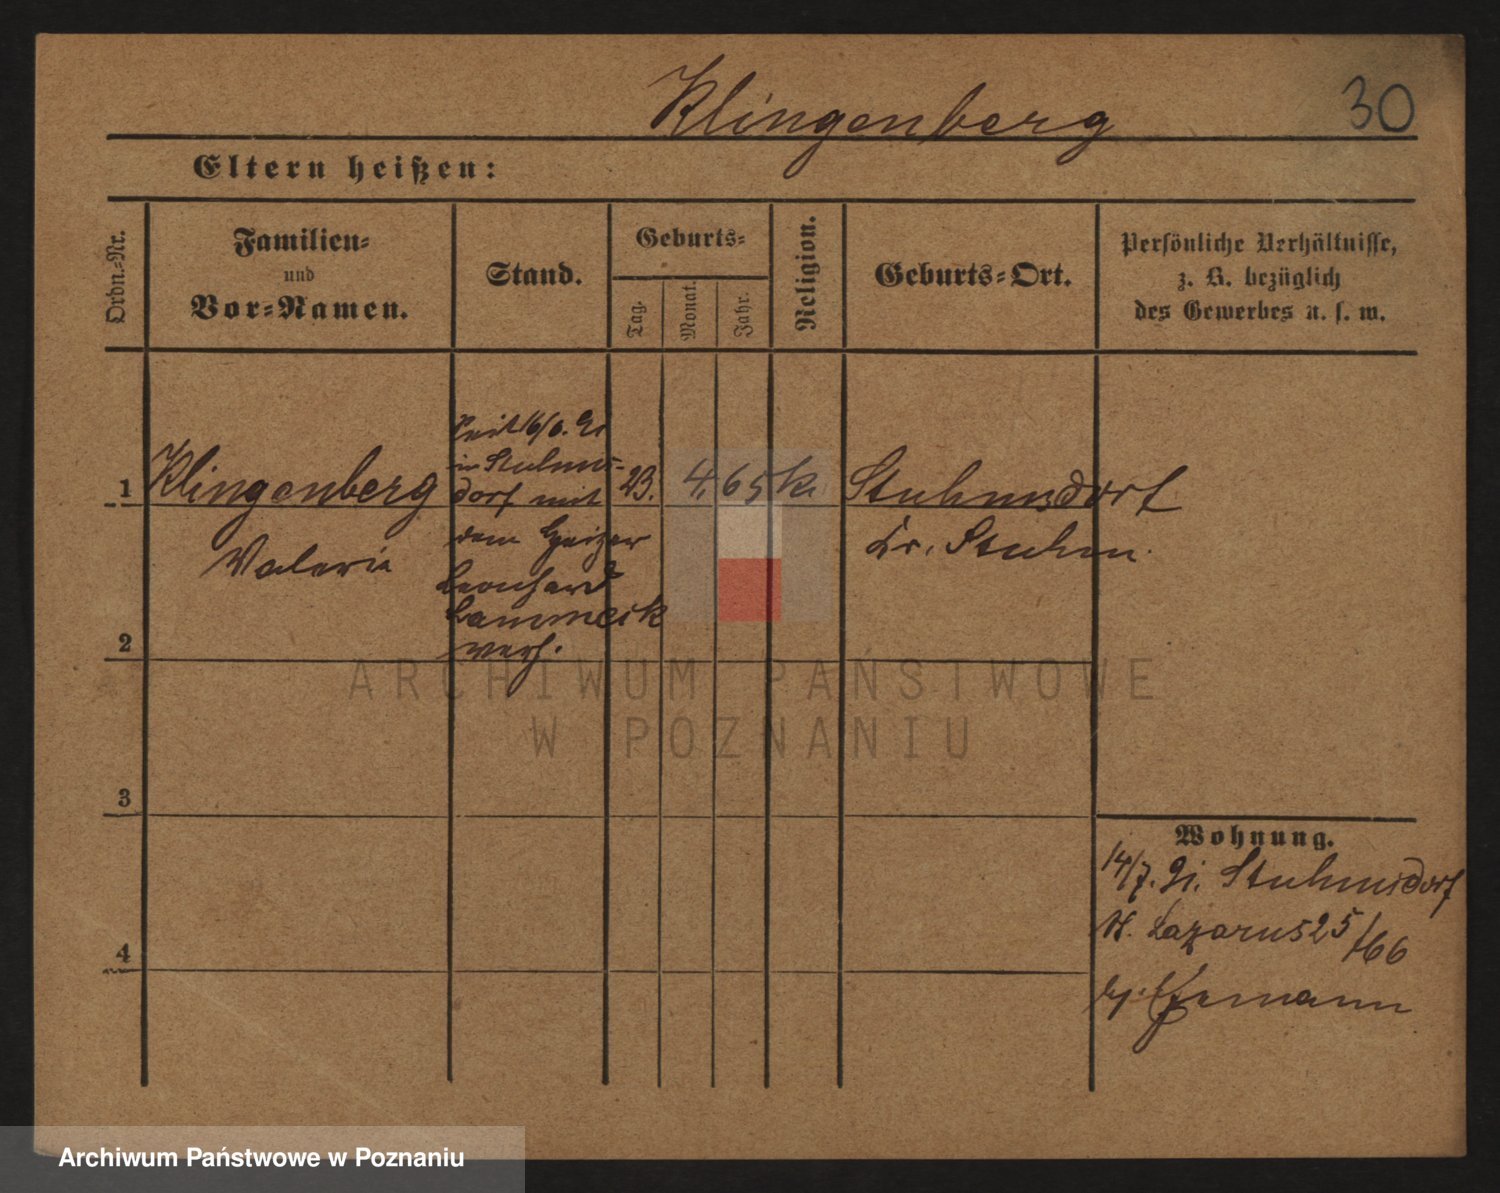 Klingenberg 30
Eltern heißen:
Ordn.-Nr.
Familien-
und
Vor-Namen.
Stand.
Geburts-
Tag.
Monat.
Jahr.
Religion.
Geburts-Ort.
Persönliche Verhältnisse,
z. B. bezüglich
des Gewerbes u. s. w.
1
Klingenberg
Valerie
in Stuhms-
dorf mit
dem Heizer
Leonhard
Lammeck
verh.
23. 4. 65 k.
Stuhmsdorf
Kr. Stuhm.
2
3
4
Wohnung.
14/7. 91. Stuhmsdorf
St. Lazarus 25/66
ARCHIWUM PAŃSTWOWE
W POZNANIU
Archiwum Państwowe w Poznaniu